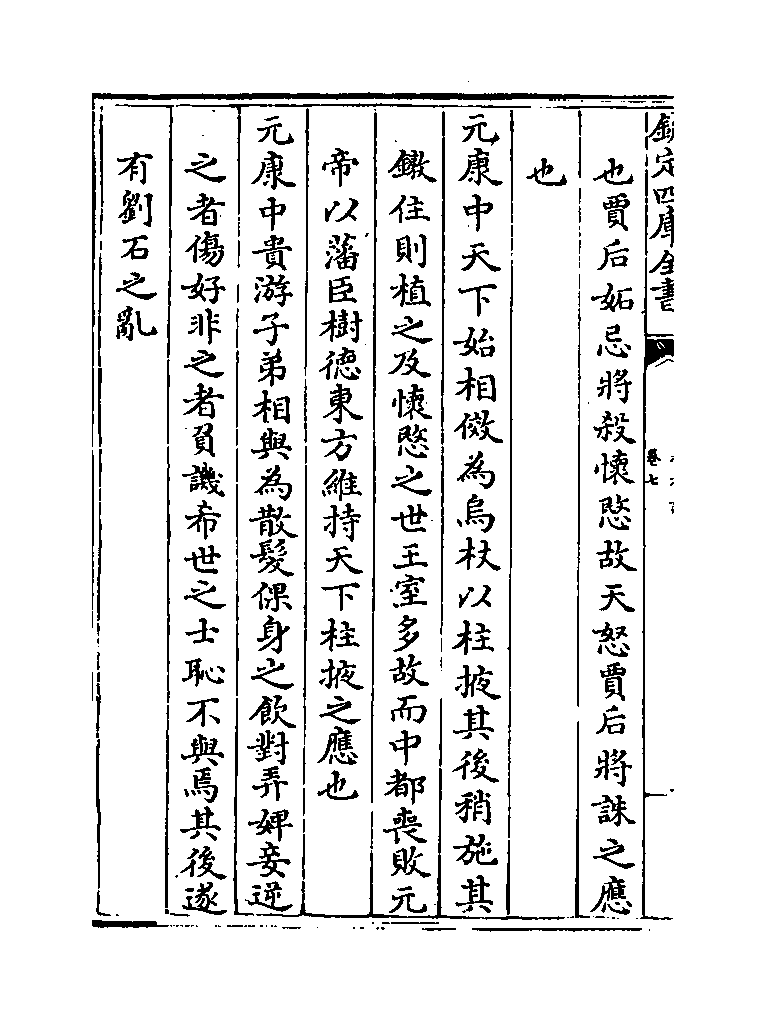 欽定四庫全書
卷七
也賈后妬忌將殺懷愍故天怒賈后將誅之應
也
元康中天下始相傚為烏杖以柱掖其後稍施其
鐓住則植之及懷愍之世王室多故而中都喪敗元
帝以藩臣樹德東方維持天下柱掖之應也
元康中貴游子弟相與為散髮倮身之飲對弄婢妾逆
之者傷好非之者負譏希世之士恥不與焉其後遂
有劉石之亂